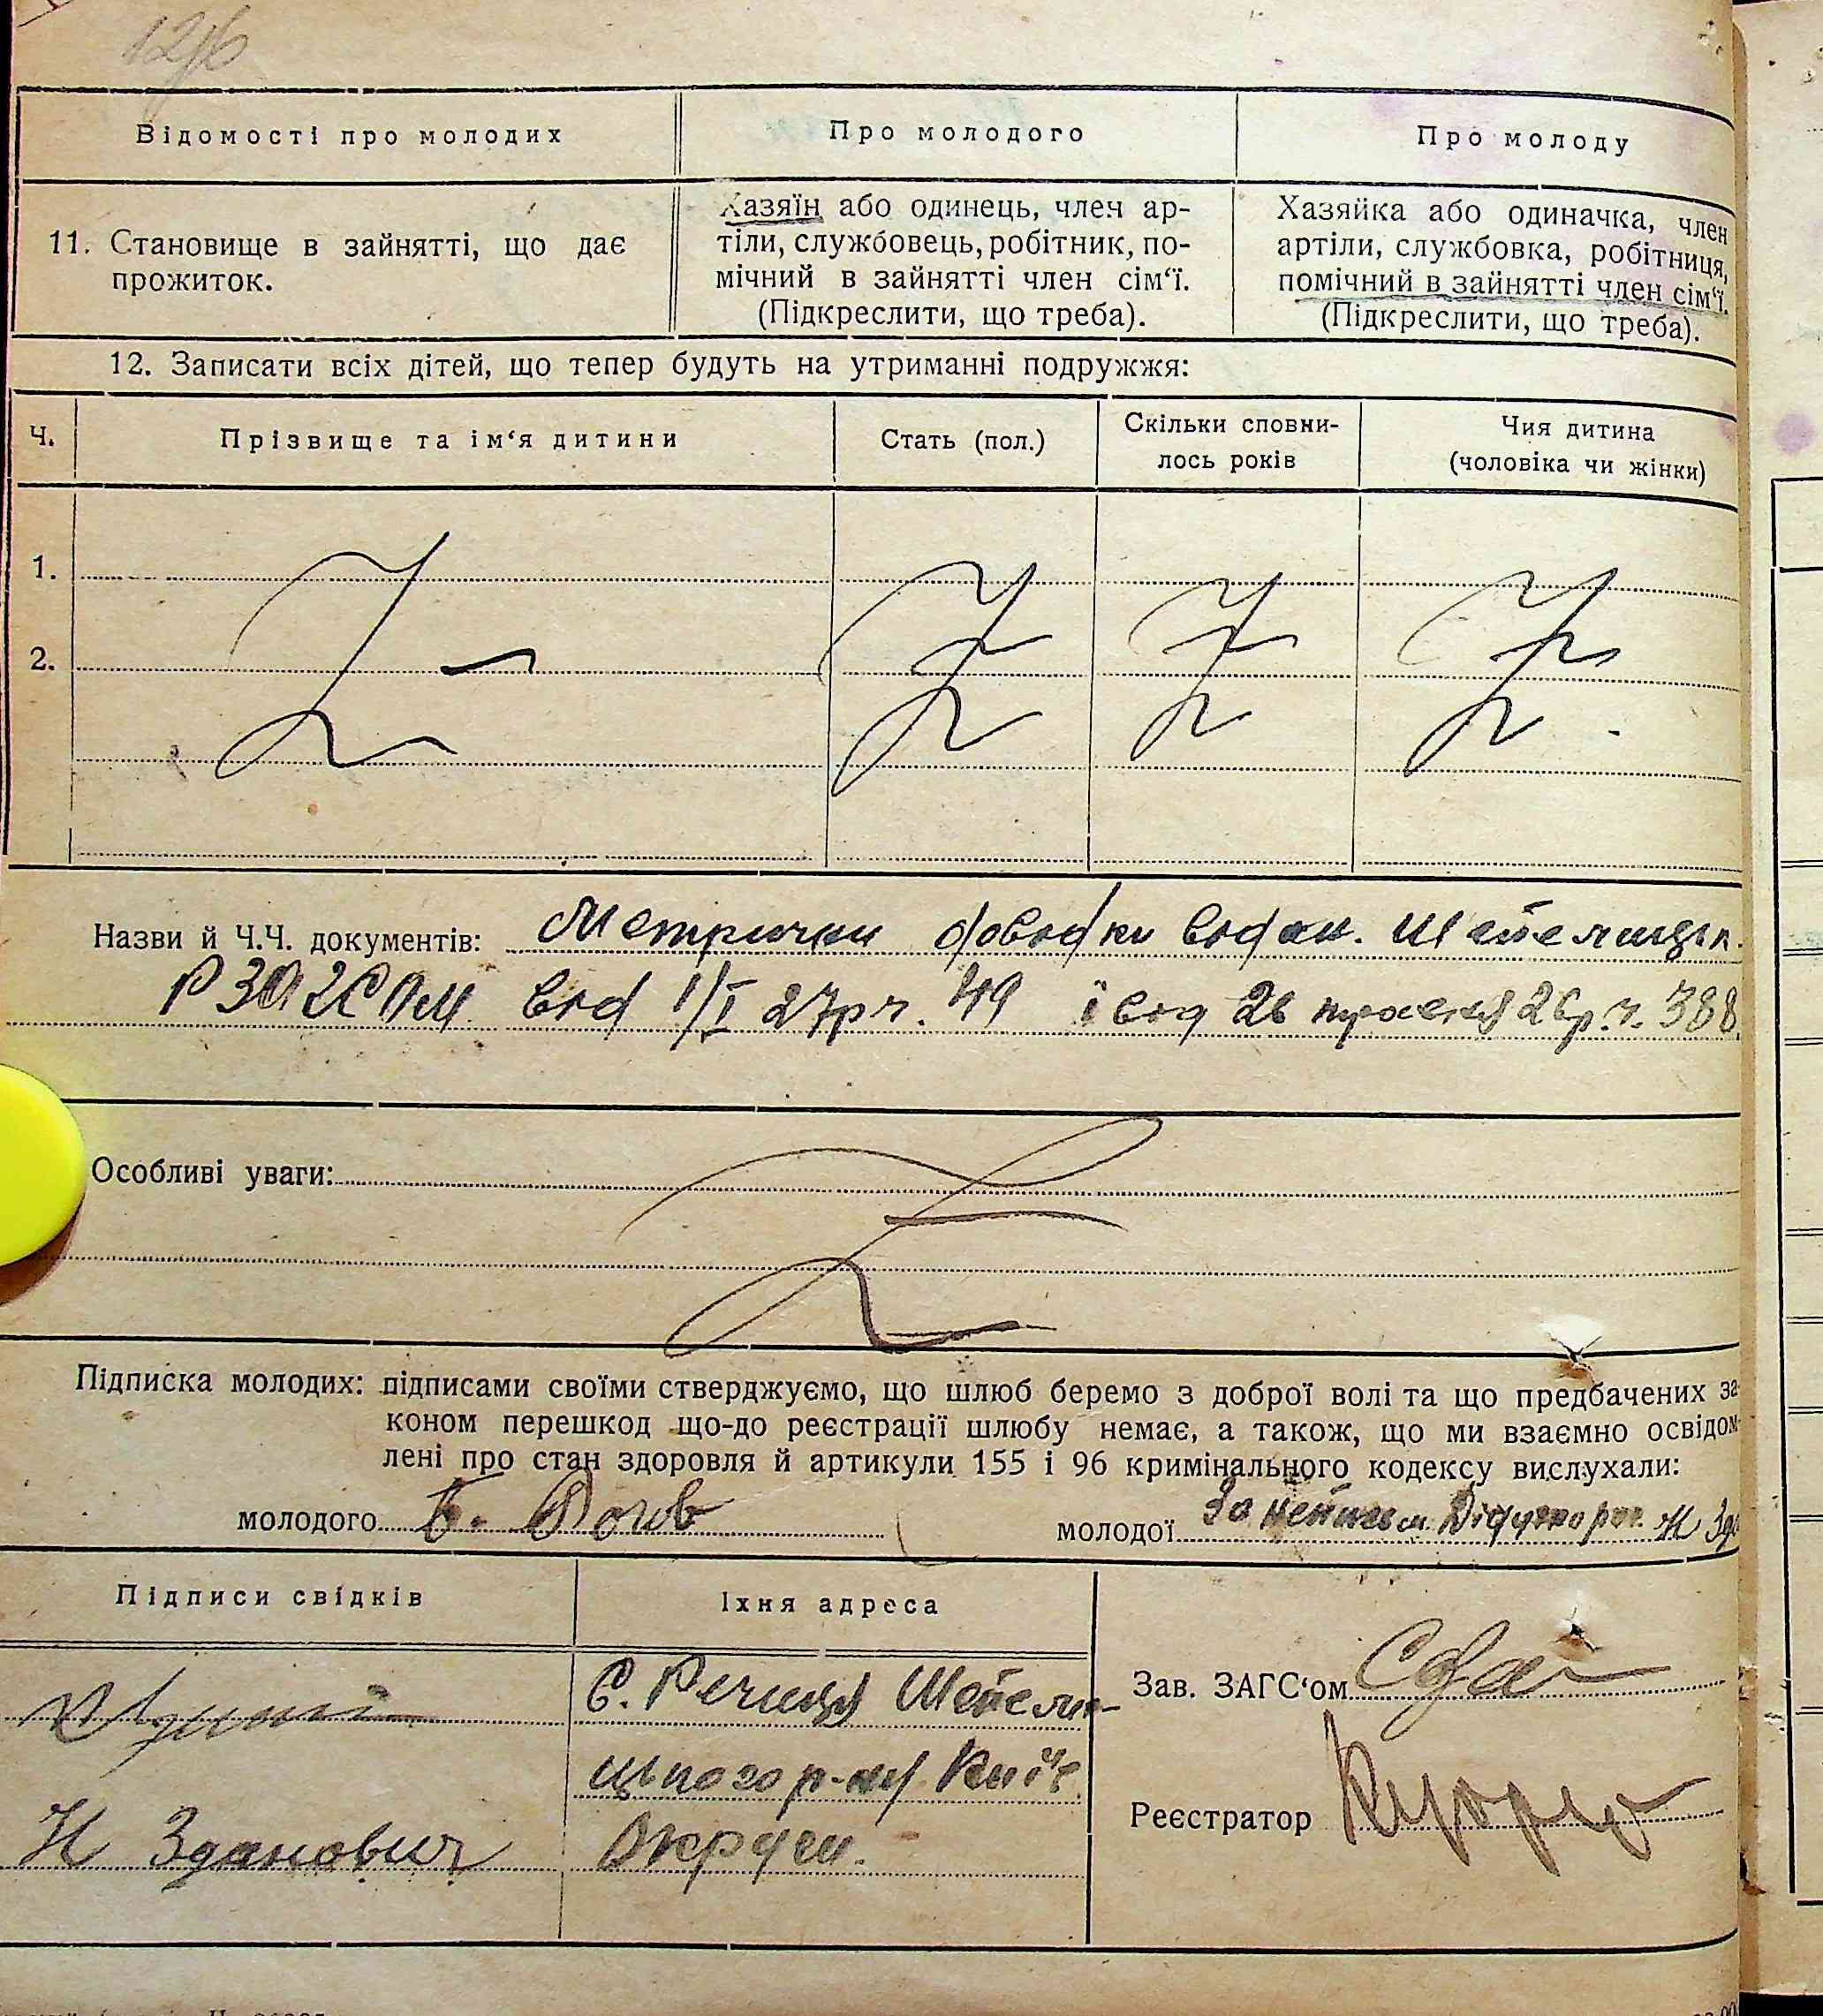 Відомості про молодих
Про молодого
Про молоду
11. Становище в зайнятті, що дає
прожиток.
Хазяїн або одинець, член ар-
тіли, службовець, робітник, по-
мічний в зайнятті член сім‘ї.
(Підкреслити, що треба).
Хазяйка або одиначка, член
артіли, службовка, робітниця,
помічний в зайнятті член сім‘ї.
(Підкреслити, що треба).
12. Записати всіх дітей, що тепер будуть на утриманні подружжя:
Ч.
Прізвище та ім‘я дитини
Стать (пол.)
Скільки сповни-
лось років
Чия дитина
(чоловіка чи жінки)
1.
2.
Назви й Ч.Ч. документів: Метрични довідки видан.
від 1/I 27р ч. 49 і від 26 26р. ч. 388
Особливі уваги:
Підписка молодих: підписами своїми стверджуємо, що шлюб беремо з доброї волі та що предбачених за-
коном перешкод що-до реєстрації шлюбу немає, а також, що ми взаємно освідом-
лені про стан здоровля й артикули 155 і 96 кримінального кодексу вислухали:
молодого
молодої
Підписи свідків
Їхня адреса
С. Речиця Шепели-
цького р-ну Київ
Округи.
Н Зданович
Зав. ЗАГС‘ом
Реєстратор